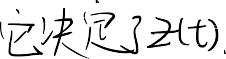 它决定了z(t).